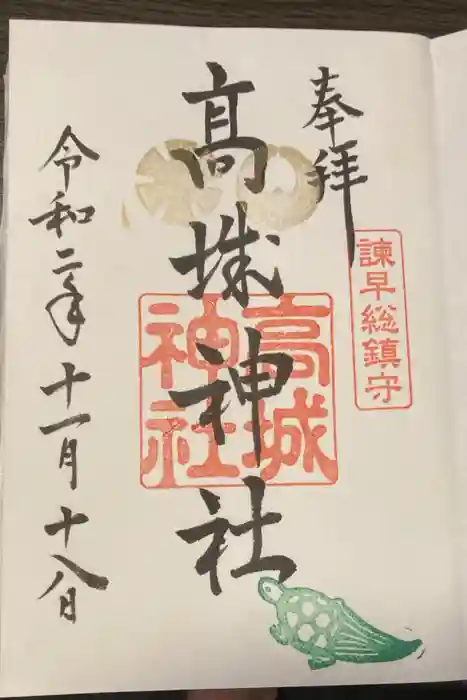 奉拝
諫早総鎮守
髙城神社
高城
神社
令和二年十一月十八日